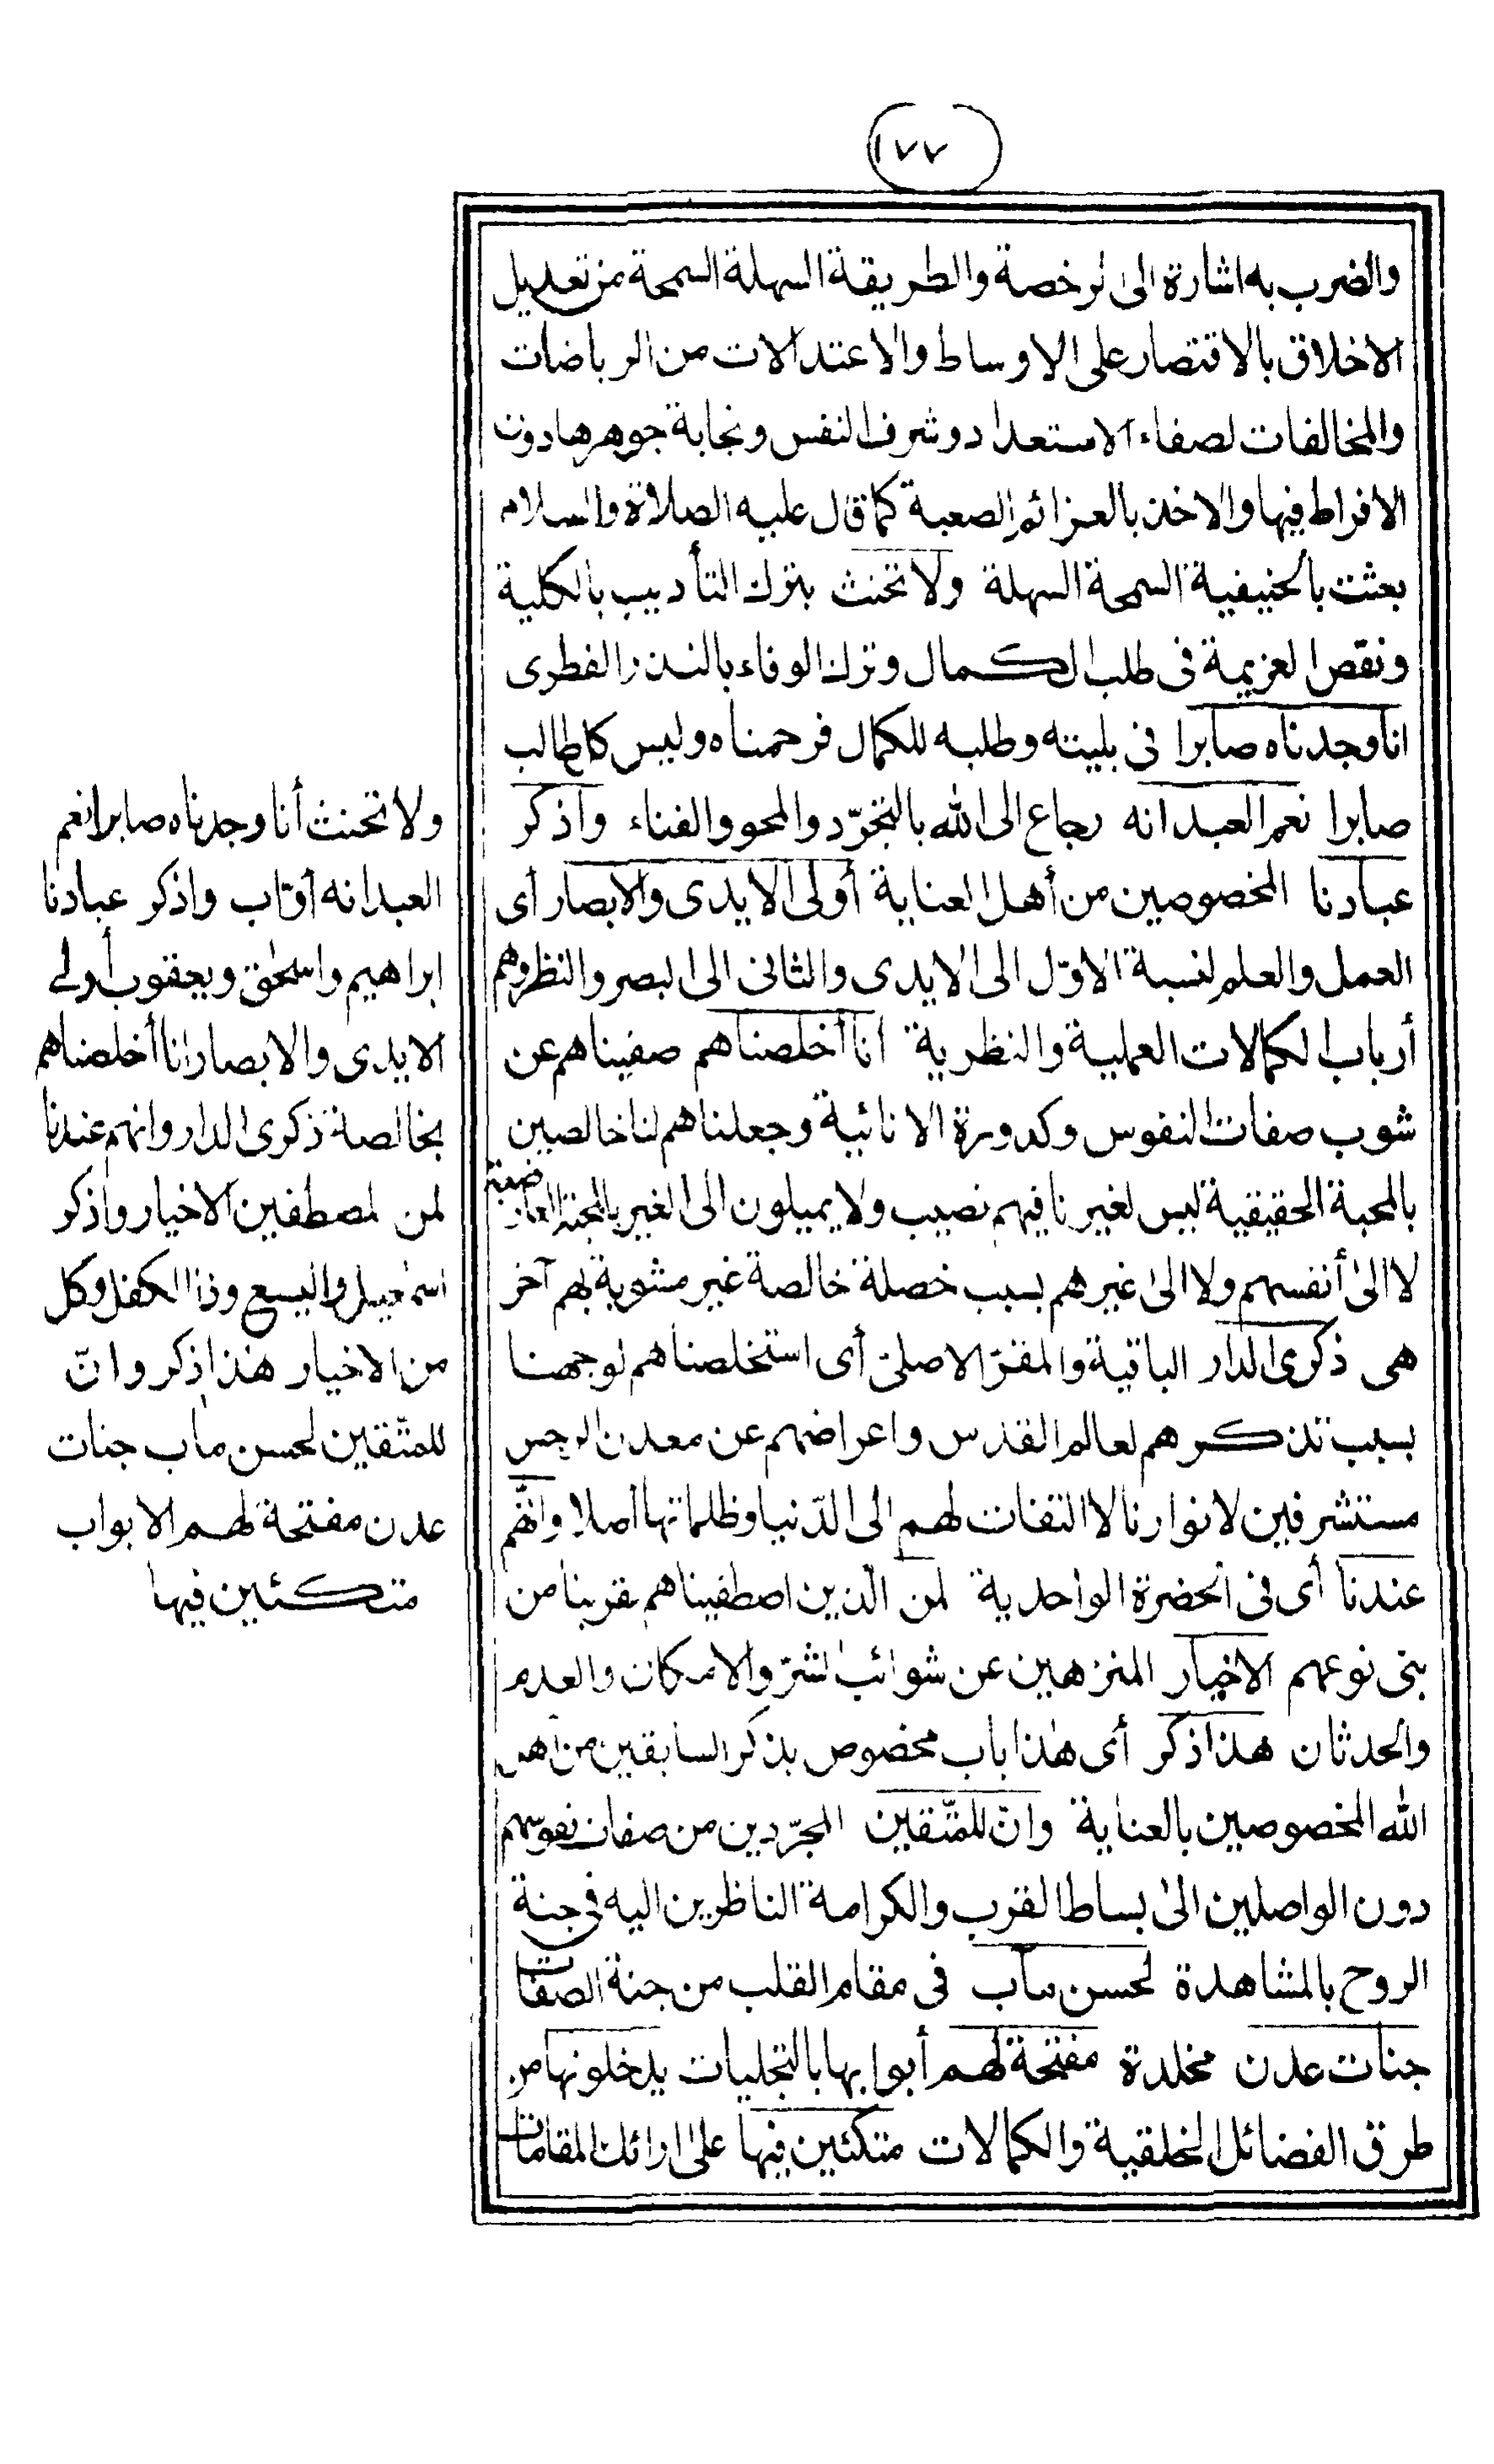 (١٧٧)
والضرب به اشارة الى الرخصة والطريقة السهلة السمحة من تعديل
الاخلاق بالاقتصار على الاوساط والاعتدالات من الرياضات
والمخالفات لصفاء الاستعداد وشرف النفس ونجابة جوهرها دون
الافراط فيها والاخذ بالعزائم الصعبة كما قال عليه الصلاة والسلام
بعثت بالحنيفية السمحة السهلة ولا تحنث بترك التأديب بالكلية
ونقص العزيمة فى طلب الكمال وترك الوفاء بالنذر الفطرى
انا وجدناه صابرا فى بليته وطلبه للكمال فرحمناه وليس كل طالب
صابرا نعم العبد انه رجاع الى الله بالتجرّد والمحو والفناء واذكر
عبادنا المخصوصين من أهل العناية أولى الايدى والابصار أى
العمل والعلم لنسبة الاوّل الى الايدى والثانى الى البصر والنظر وهم
أرباب الكمالات العملية والنظرية انا أخلصناهم صفيناهم عن
شوب صفات النفوس وكدورة الانائية وجعلناهم لنا خالصين
بالمحبة الحقيقية ليس لغيرنا فيهم نصيب ولا يميلون الى الغير بالمحبة العارضية
لا الى أنفسهم ولا الى غيرهم بسبب خصلة خالصة غير مشوبة بهم آخر
هى ذكرى الدار الباقية والمقرّ الاصلىّ أى استخلصناهم لوجهنا
بسبب تذكرهم لعالم القدس واعراضهم عن معدن الرجس
مستشرفين لانوارنا لا التفات لهم الى الدّنيا وظلماتها أصلا وانهّم
عندنا أى فى الحضرة الواحدية لمن الذين اصطفيناهم بقربنا من
بنى نوعهم الاخيار المنزهين عن شوائب الشرّ والامكان والعدم
والحدثان هذا ذكر أى هذا باب مخصوص بذكر السابقين من أهل
الله المخصوصين بالعناية وانّ للمتّقين المجرّدين من صفات نفوسهم
دون الواصلين الى بساط القرب والكرامة الناظرين اليه فى جنة
الروح بالمشاهدة لحسن مآب فى مقام القلب من جنة الصفات
جنات عدن مخلدة مفتحة لهم أبوابها بالتجليات يدخلونها من
طرق الفضائل الخلقية والكمالات متكئين فيها على ارائك المقامات
ولا تحنث أنا وجدناه صابرا نعم
العبد انه أوّاب واذكر عبادنا
ابراهيم واسحٰق ويعقوب أولى
الايدى والابصار انا أخلصناهم
بخالصة ذكرى الدار وانهم عندنا
لمن المصطفين الاخيار واذكر
اسمٰعيل واليسع وذا الكفل وكل
من الاخيار هذا ذكر وانّ
للمتّقين لحسن مآب جنات
عدن مفتحة لهم الابواب
متكئين فيها